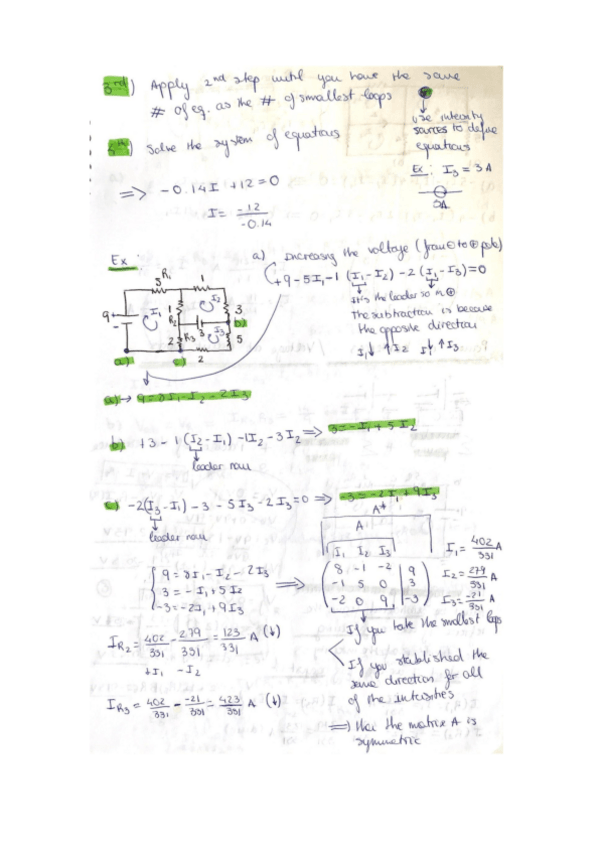 3rd) Apply 2nd step until you have the same
# of eq. as the # of smallest loops
use intensity
sources to define
equations
Ex: I₃ = 3 A
3A
5th) Solve the system of equations
⟹ -0.14I + 12 = 0
I = -12/-0.14
Ex:
a) Increasing the voltage (from ⊖ to ⊕ pole)
+9 - 5I₁ - 1 (I₁ - I₂) - 2 (I₁ - I₃) = 0
It's the leader so in ⊕
the subtraction is because
the opposite direction
I₁↓ ↑I₂ I₁↓ ↑I₃
R₁
5 1
9 + - I₁ 1 R₂ I₂ 3 b)
3 I₃ 5
2 R₃
2
a) c)
a) → 9 = 8I₁ - I₂ - 2I₃
b) +3 - 1 (I₂ - I₁) - 1I₂ - 3I₂ ⟹ 3 = -I₁ + 5I₂
leader now
c) -2(I₃ - I₁) - 3 - 5I₃ - 2I₃ = 0 ⟹ -3 = -2I₁ + 9I₃
leader now
A*
A
I₁ I₂ I₃
{ 9 = 8I₁ - I₂ - 2I₃
3 = -I₁ + 5I₂
-3 = -2I₁ + 9I₃
⟹
( 8 -1 -2 | 9
-1 5 0 | 3
-2 0 9 | -3 )
I₁ = 402/331 A
I₂ = 279/331 A
I₃ = -21/331 A
I_R₂ = 402/331 - 279/331 = 123/331 A (↓)
+I₁ - I₂
I_R₃ = 402/331 - -21/331 = 423/331 A (↓)
If you take the smallest loops
If you stablished the
same direction for all
of the intensities
⟹ the matrix A is
symmetric